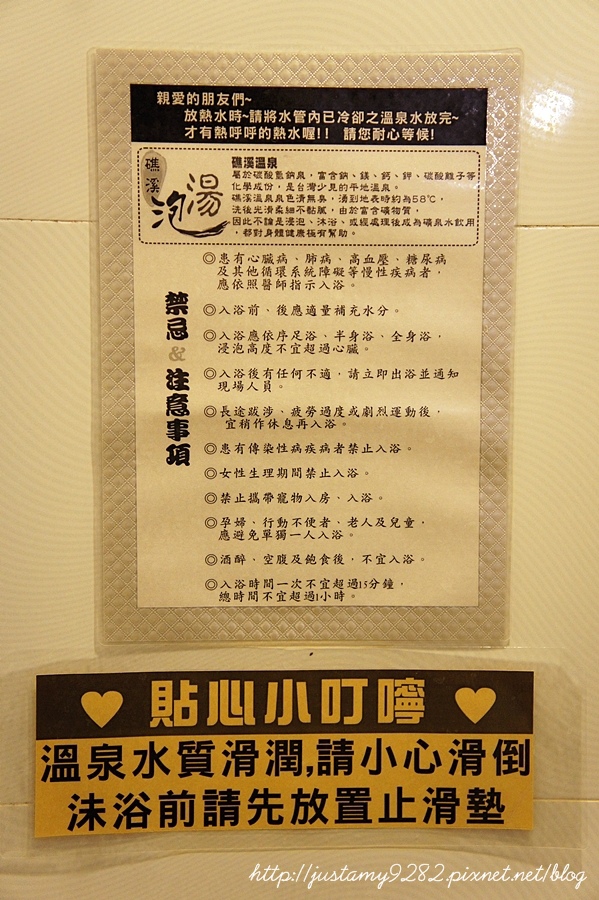 親愛的朋友們~
放熱水時~請將水管內已冷卻之溫泉水放完~
才有熱呼呼的熱水喔!! 請您耐心等候!
礁溪
泡湯
礁溪溫泉
屬於碳酸氫鈉泉，富含鈉、鎂、鈣、鉀、碳酸離子等
化學成份，是台灣少見的平地溫泉。
礁溪溫泉泉色清無臭，湧到地表時約為58℃，
洗後光滑柔細不黏膩，由於富含礦物質，
因此不論是浸泡、沐浴、或經處理後成為礦泉水飲用
，都對身體健康極有幫助。
禁忌 & 注意事項
◎患有心臟病、肺病、高血壓、糖尿病
及其他循環系統障礙等慢性疾病者，
應依照醫師指示入浴。
◎入浴前、後應適量補充水分。
◎入浴應依序足浴、半身浴、全身浴，
浸泡高度不宜超過心臟。
◎入浴後有任何不適，請立即出浴並通知
現場人員。
◎長途跋涉、疲勞過度或劇烈運動後，
宜稍作休息再入浴。
◎患有傳染性病疾病者禁止入浴。
◎女性生理期間禁止入浴。
◎禁止攜帶寵物入房、入浴。
◎孕婦、行動不便者、老人及兒童，
應避免單獨一人入浴。
◎酒醉、空腹及飽食後，不宜入浴。
◎入浴時間一次不宜超過15分鐘，
總時間不宜超過1小時。
♥ 貼心小叮嚀 ♥
溫泉水質滑潤,請小心滑倒
沬浴前請先放置止滑墊
http://justamy9282.pixnet.net/blog